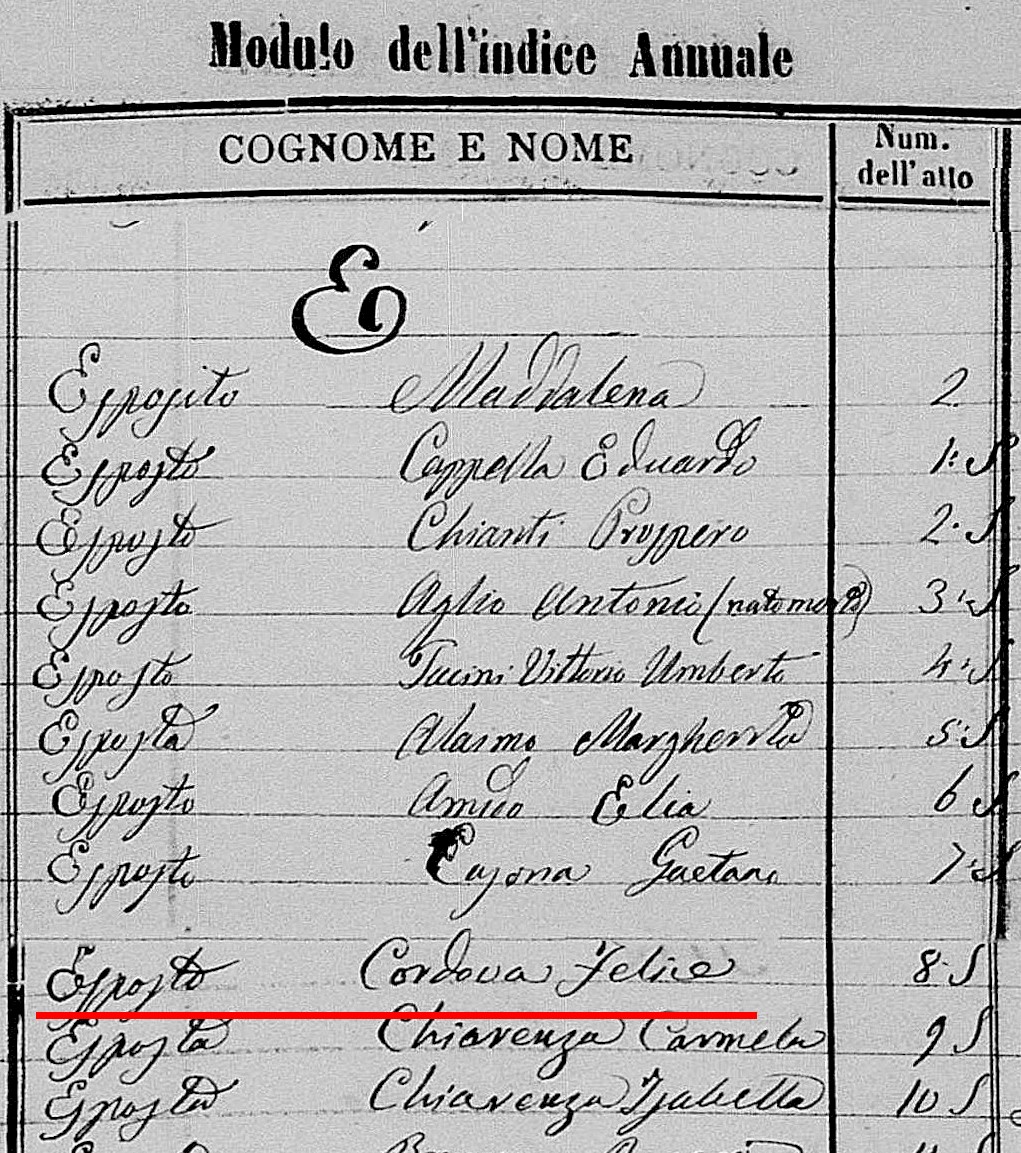 Modulo dell'indice Annuale
COGNOME E NOME Num. dell'atto
E
Esposito Maddalena 2.
Esposto Cappella Eduardo 1. S
Esposto Chianti Prospero 2. S
Esposto Aglio Antonio (nato morto) 3. S
Esposto Tucini Vittorio Umberto 4. S
Esposta Alaimo Margherita 5. S
Esposto Amico Elia 6 S
Esposto Gaetano 7. S
Esposto Cordova Felice 8. S
Esposta Chiarenza Carmela 9 S
Esposta Chiarenza Isabella 10 S